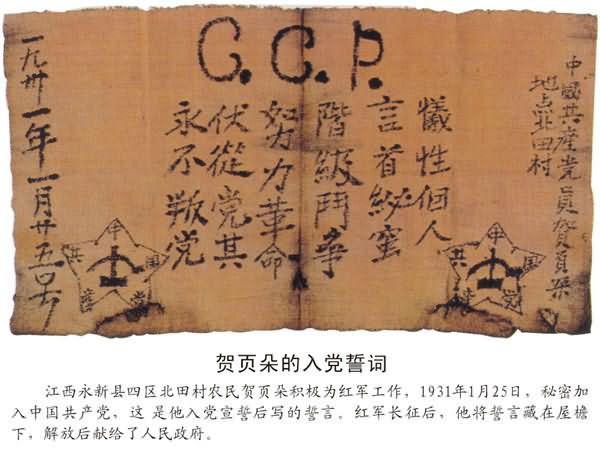 C.C.P.
中國共產党員賀頁朵
地点北田村
犧性個人
言首秘蜜
階級鬥争
努力革命
伏從党其
永不叛党
一九卅一年一月廿五号
中国共產党
中国共產党
贺页朵的入党誓词
江西永新县四区北田村农民贺页朵积极为红军工作，1931年1月25日，秘密加
入中国共产党，这 是他入党宣誓后写的誓言。红军长征后，他将誓言藏在屋檐
下，解放后献给了人民政府。